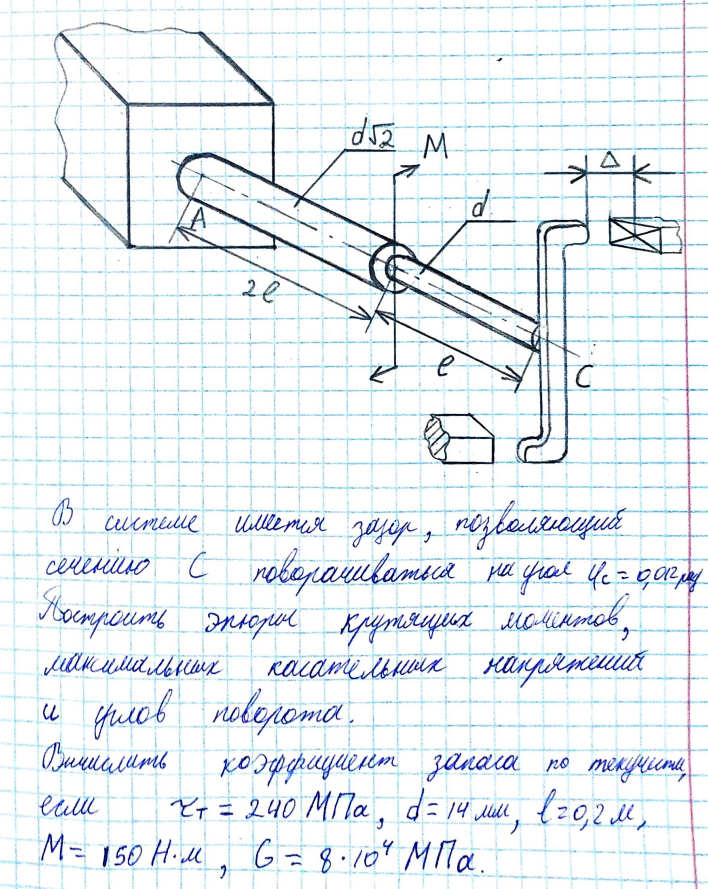 d√2
M
Δ
d
A
2ℓ
ℓ
C
В системе имеется зазор, позволяющий
сечению С поворачиваться на угол φc = 0,012 рад
Построить эпюры крутящих моментов,
максимальных касательных напряжений
и углов поворота.
Вычислить коэффициент запаса по текучести,
если τт = 240 МПа, d = 14 мм, ℓ = 0,2 м,
M = 150 Н·м, G = 8·10⁴ МПа.